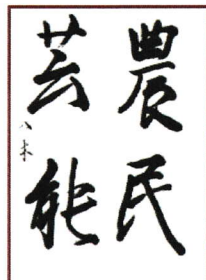 農民
芸能
八木